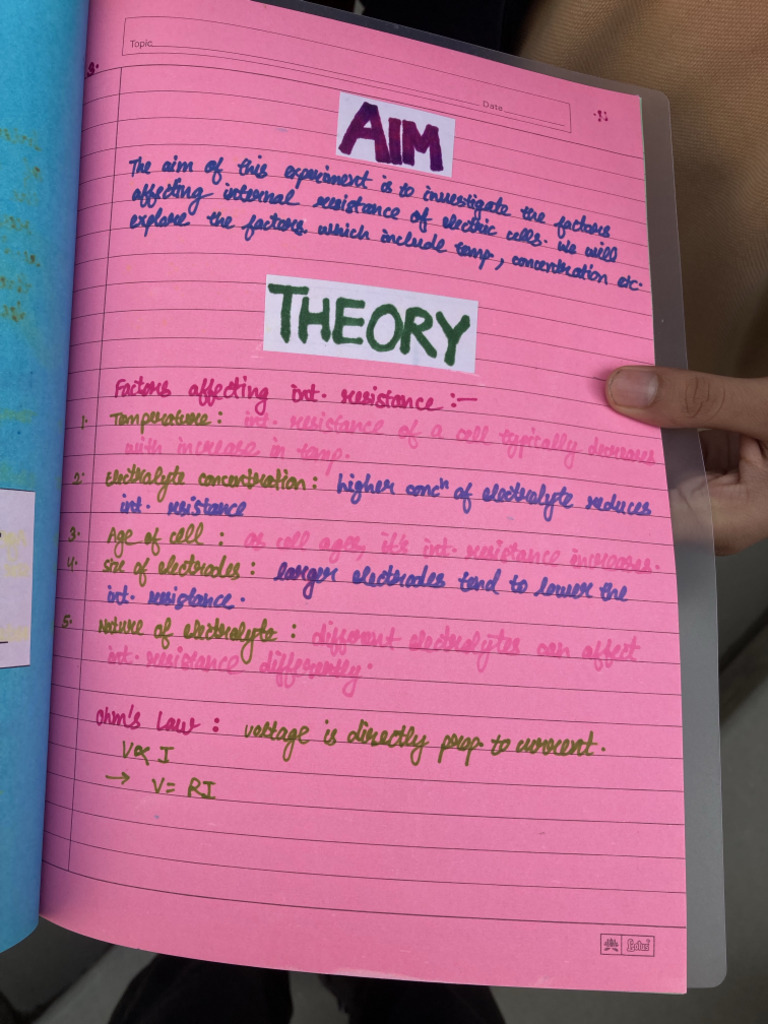 Topic
Date
3.
AIM
The aim of this experiment is to investigate the factors
affecting internal resistance of electric cells. We will
explore the factors which include temp, concentration etc.
THEORY
Factors affecting int. resistance :-
1. Temperature : int. resistance of a cell typically decreases
with increase in temp.
2. Electrolyte concentration : higher concⁿ of electrolyte reduces
int. resistance
3. Age of cell : as cell ages, it's int. resistance increases.
4. Size of electrodes : larger electrodes tend to lower the
int. resistance.
5. Nature of electrolyte : different electrolytes can affect
int. resistance differently.
Ohm's Law : voltage is directly prop. to current.
V ∝ I
→ V = RI